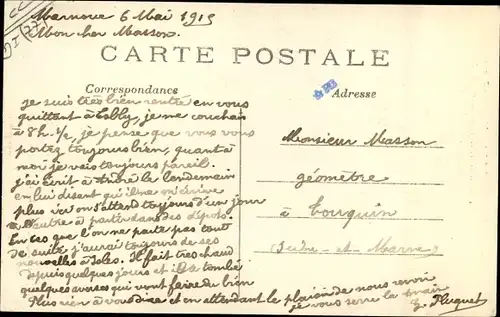 Marnoue 6 Mai 1915
Mon cher Masson.
CARTE POSTALE
Correspondance
Adresse
je suis très bien rentré en vous
quittant à je me couchais
à 8h ½, je pense que vous vous
portez toujours bien, quant à
moi je vais toujours pareil.
j'ai écrit à André le lendemain
en lui disant qu'il ne m'écrive
plus ici on s'attend toujours d'un jour
à l'autre à partir dans des dépôts.
En cas que l'on ne parte pas tout
de suite j'aurai toujours de ses
nouvelles à Isles. Il fait très chaud
depuis quelques jours et il a tombé
quelques averses qui vont faire du bien
Plus rien à vous dire et en attendant le plaisir de nous revoir
je vous serre la main
Monsieur Masson
géomètre
à Touquin
(Seine-et-Marne)